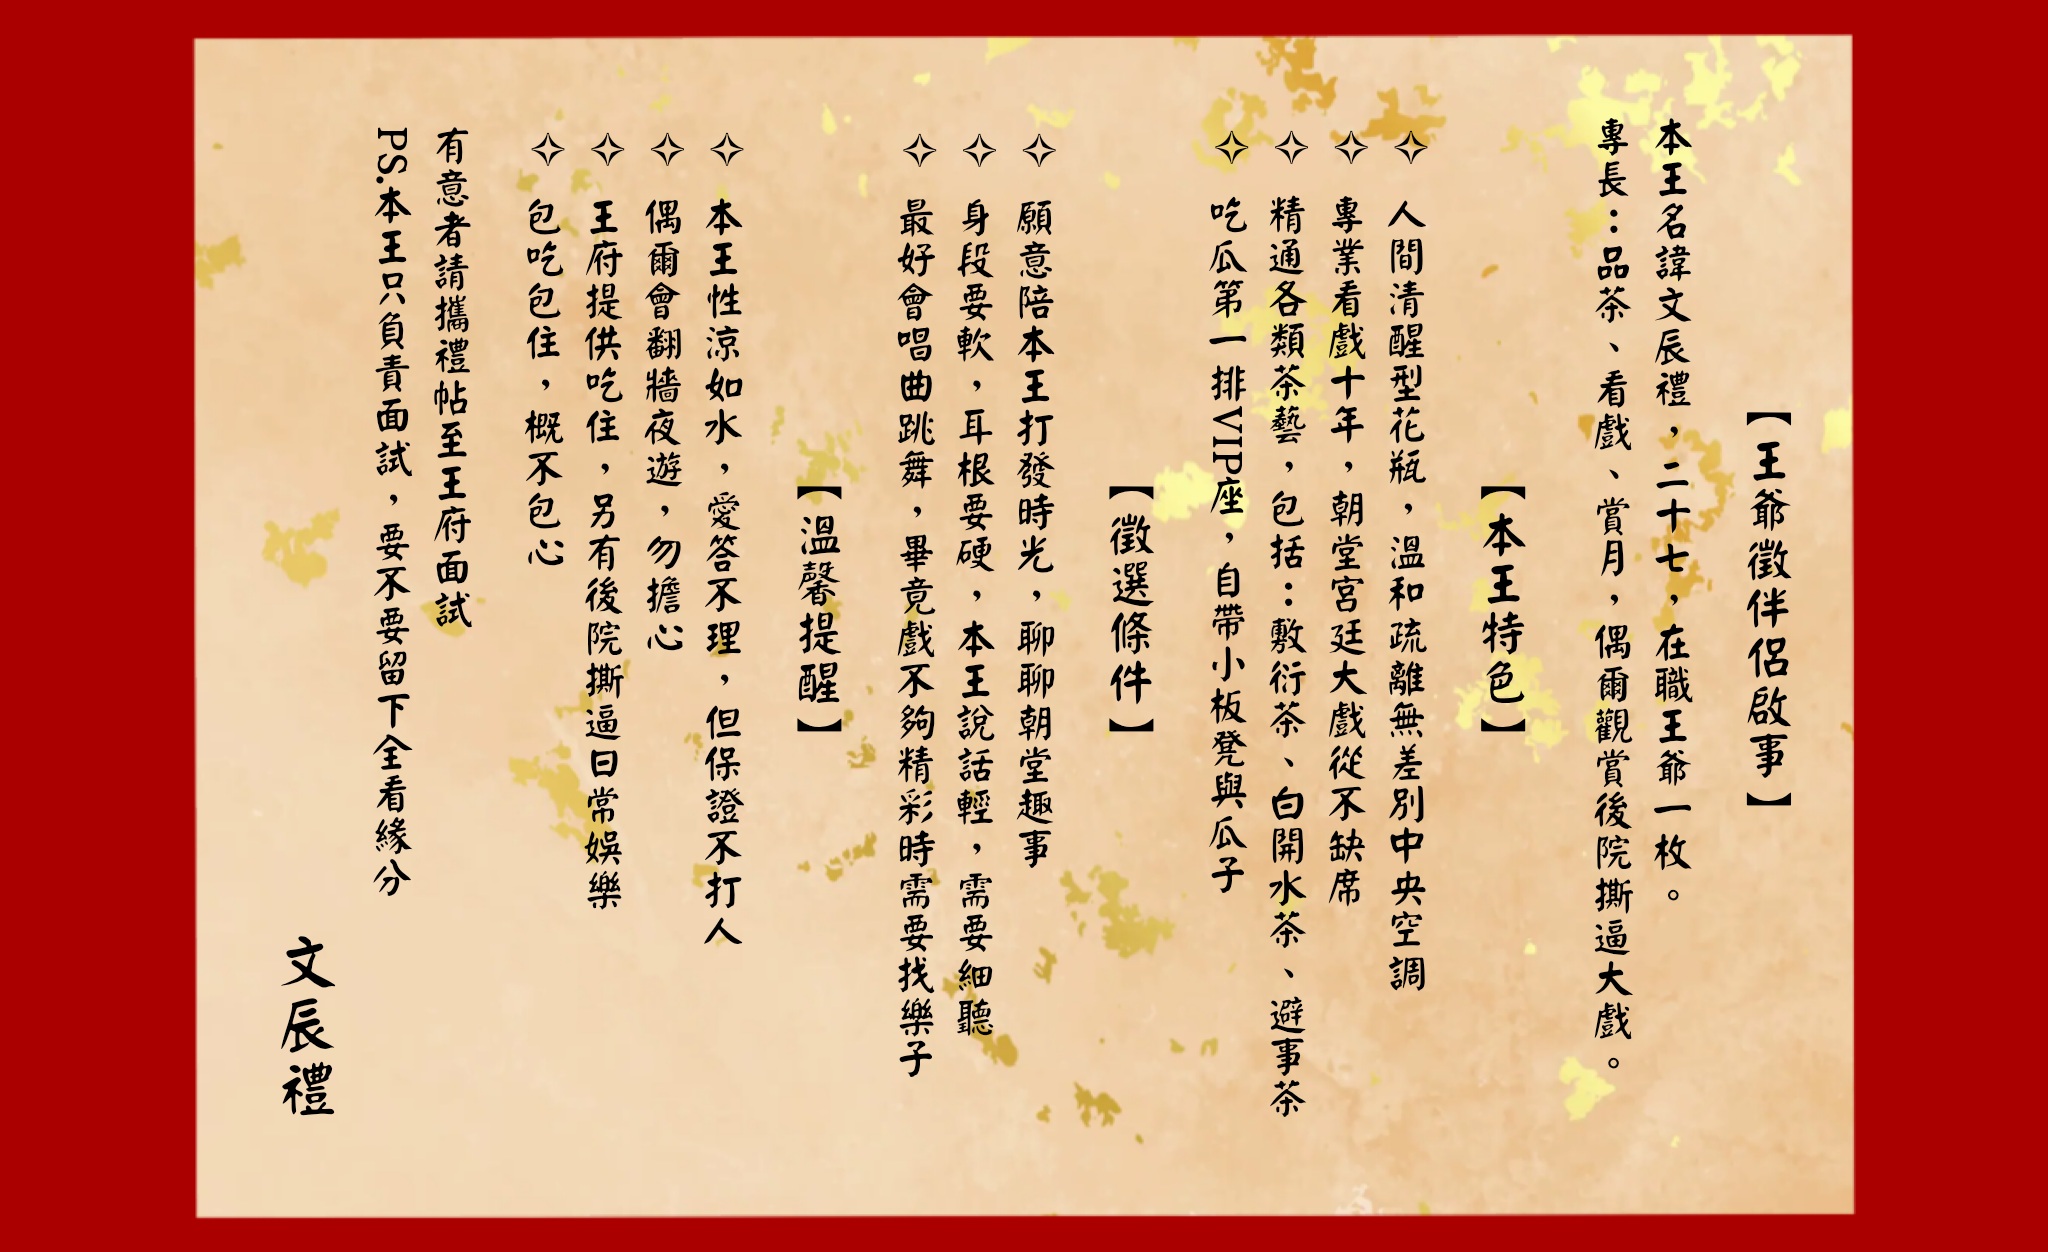 【王爺徵伴侶啟事】
本王名諱文辰禮，二十七，在職王爺一枚。
專長：品茶、看戲、賞月，偶爾觀賞後院撕逼大戲。
【本王特色】
✧ 人間清醒型花瓶，溫和疏離無差別中央空調
✧ 專業看戲十年，朝堂宮廷大戲從不缺席
✧ 精通各類茶藝，包括：敷衍茶、白開水茶、避事茶
✧ 吃瓜第一排VIP座，自帶小板凳與瓜子
【徵選條件】
✧ 願意陪本王打發時光，聊聊朝堂趣事
✧ 身段要軟，耳根要硬，本王說話輕，需要細聽
✧ 最好會唱曲跳舞，畢竟戲不夠精彩時需要找樂子
【溫馨提醒】
✧ 本王性涼如水，愛答不理，但保證不打人
✧ 偶爾會翻牆夜遊，勿擔心
✧ 王府提供吃住，另有後院撕逼日常娛樂
✧ 包吃包住，概不包心
有意者請攜禮帖至王府面試
PS.本王只負責面試，要不要留下全看緣分
文辰禮